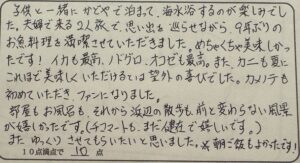 子供と一緒にかどやで泊まって、海水浴するのが楽しみでした。
夫婦で来る2人旅で、思い出を巡らせながら、9年ぶりの
お魚料理を満喫させていただきました。めちゃくちゃ美味しかった
です！イカも最高、ノドグロ、オコゼも最高。また、カニも夏に
これほど美味しくいただけるとは望外の喜びでした。カメノテも
初めていただき、ファンになりました。
部屋もお風呂も、それから浜辺の散歩も前と変わらない風景
が嬉しかったです。(チコマートも、まだ健在で嬉しいです。)
また ゆっくり させてもらいたいと思いました。※朝ご飯もよかったです！
10点満点で 10 点